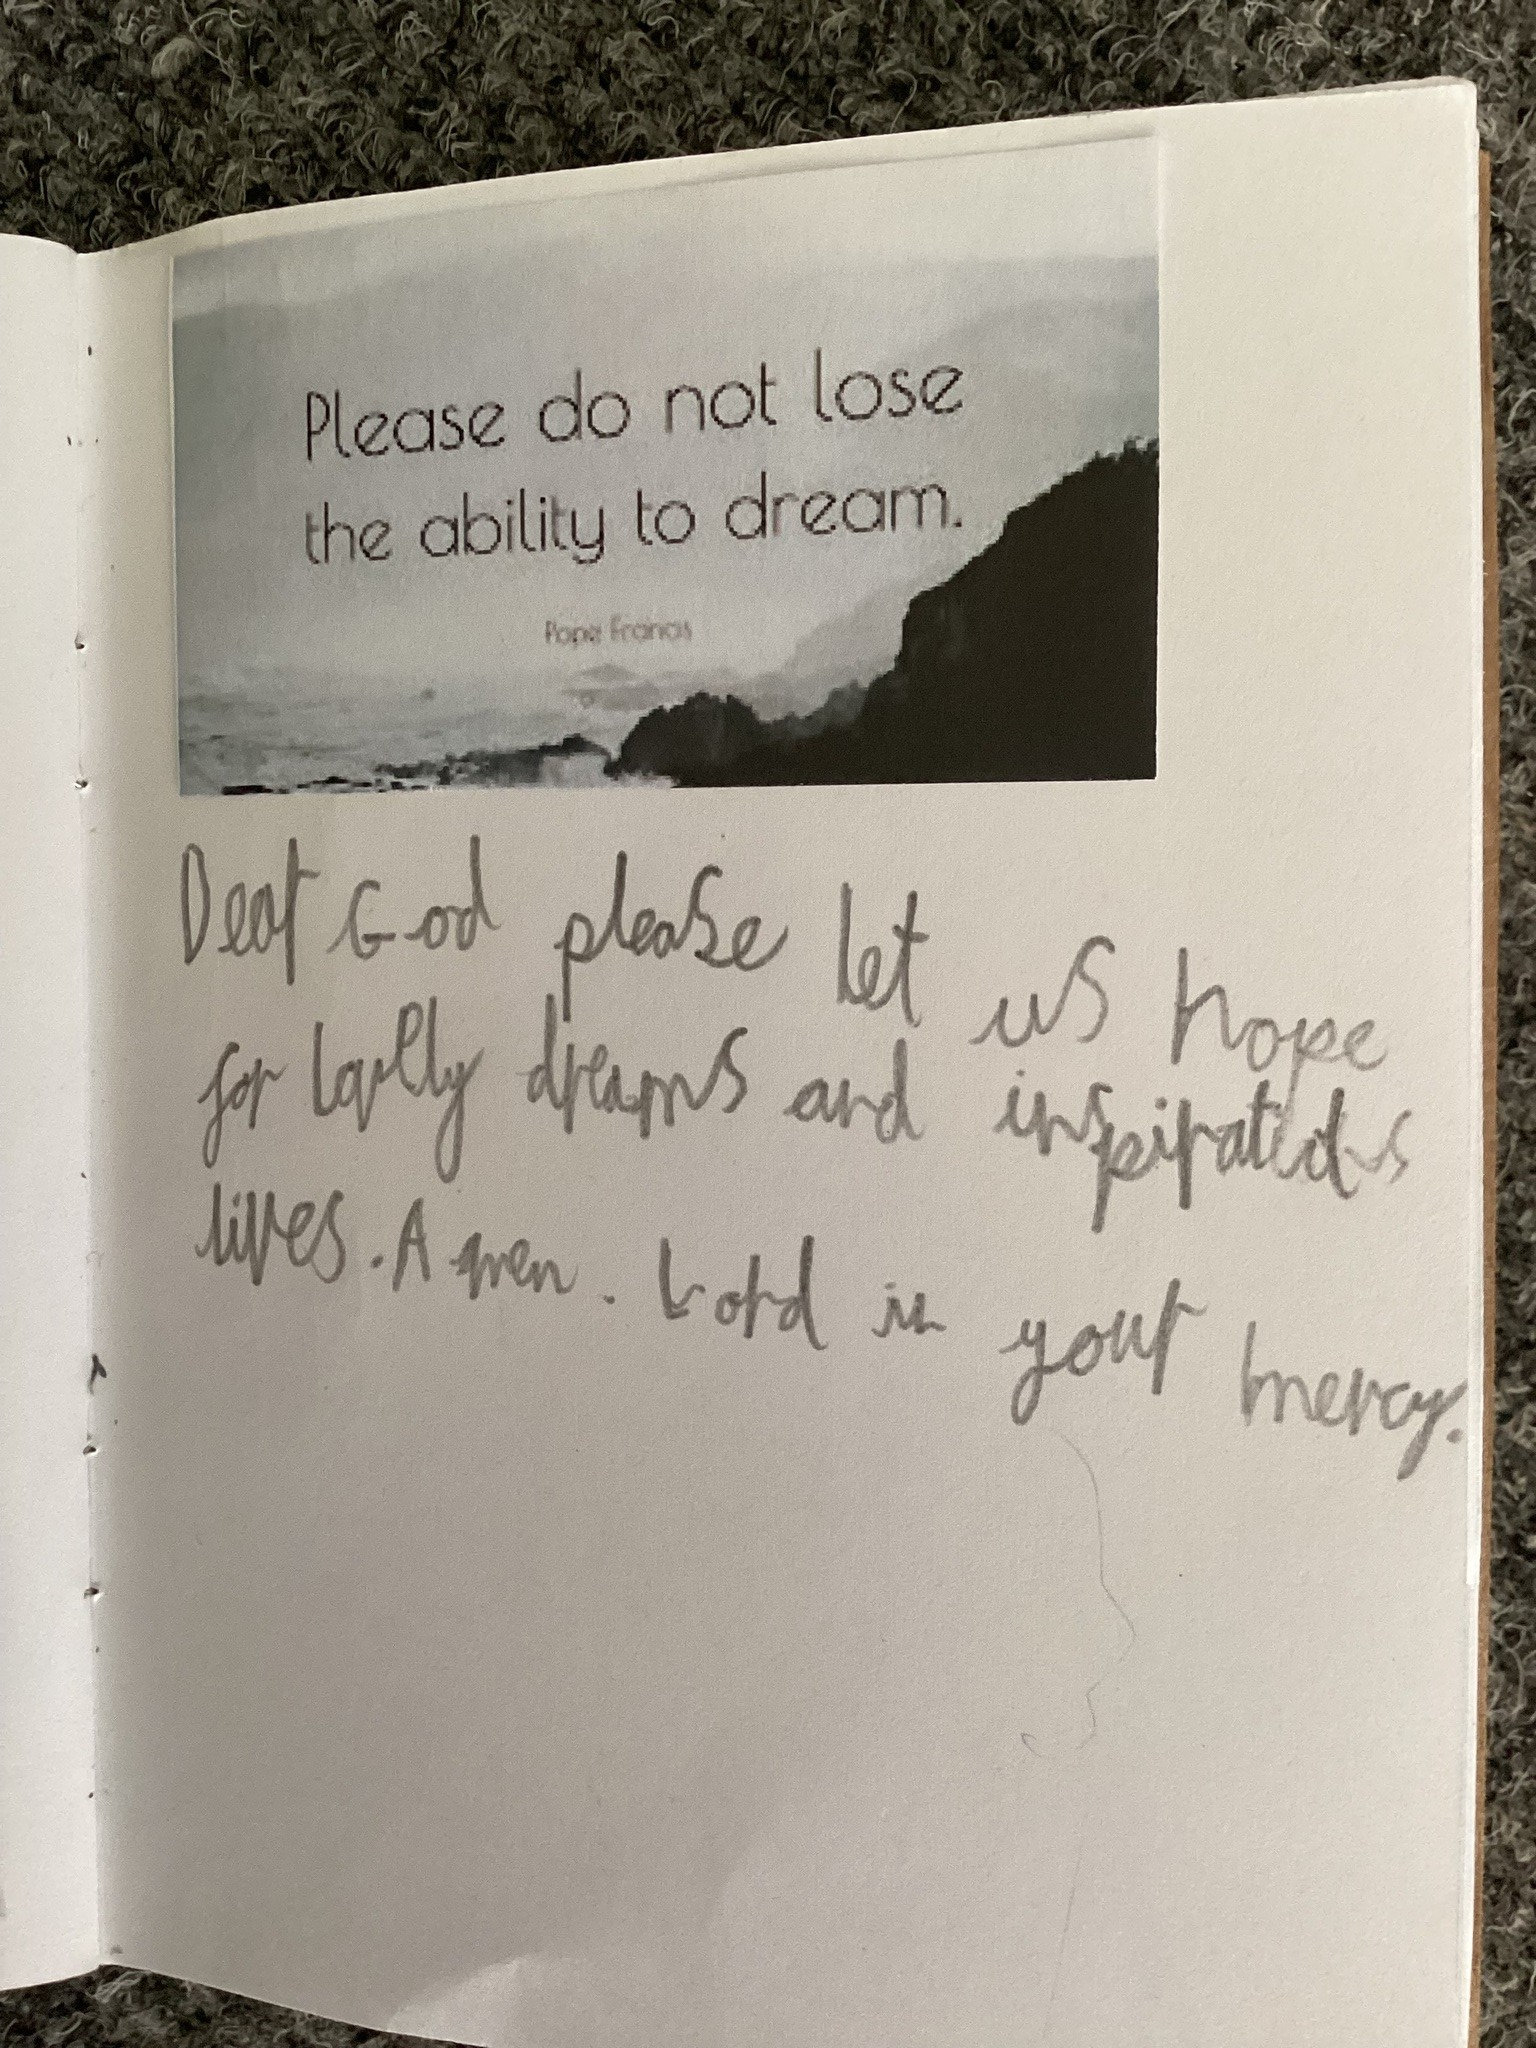 Please do not lose
the ability to dream.
Pope Francis
Dear God please let us hope
for dreams and
lives. Amen. Lord in your mercy.